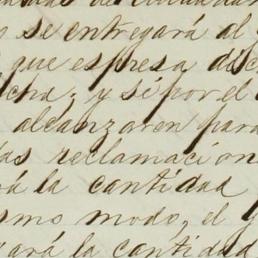 se entregará al
que espresa dic
cha; y si por el
alcanzaren para
as reclamacion
rá la cantidad
smo modo, el
gará la cantidad